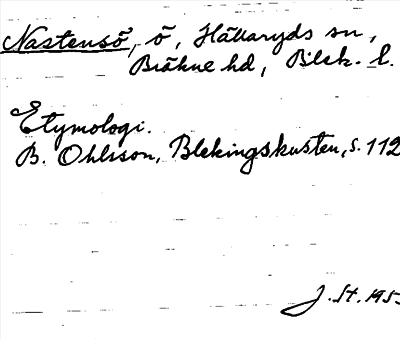 Nastensö, ö, Hällaryds sn,
Bräkne hd, Blek. l.
Etymologi.
B. Ohlsson, Blekingskusten, s. 112
J. St. 195